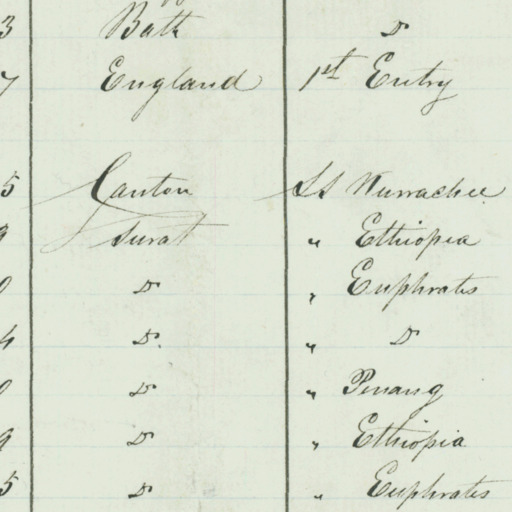 3 Bath Do
7 England 1st Entry
5 Canton SS Kurrachee
9 Surat " Ethiopia
0 Do " Euphrates
4 Do. " Do
0 Do " Penang
9 Do " Ethiopia
5 Do " Euphrates